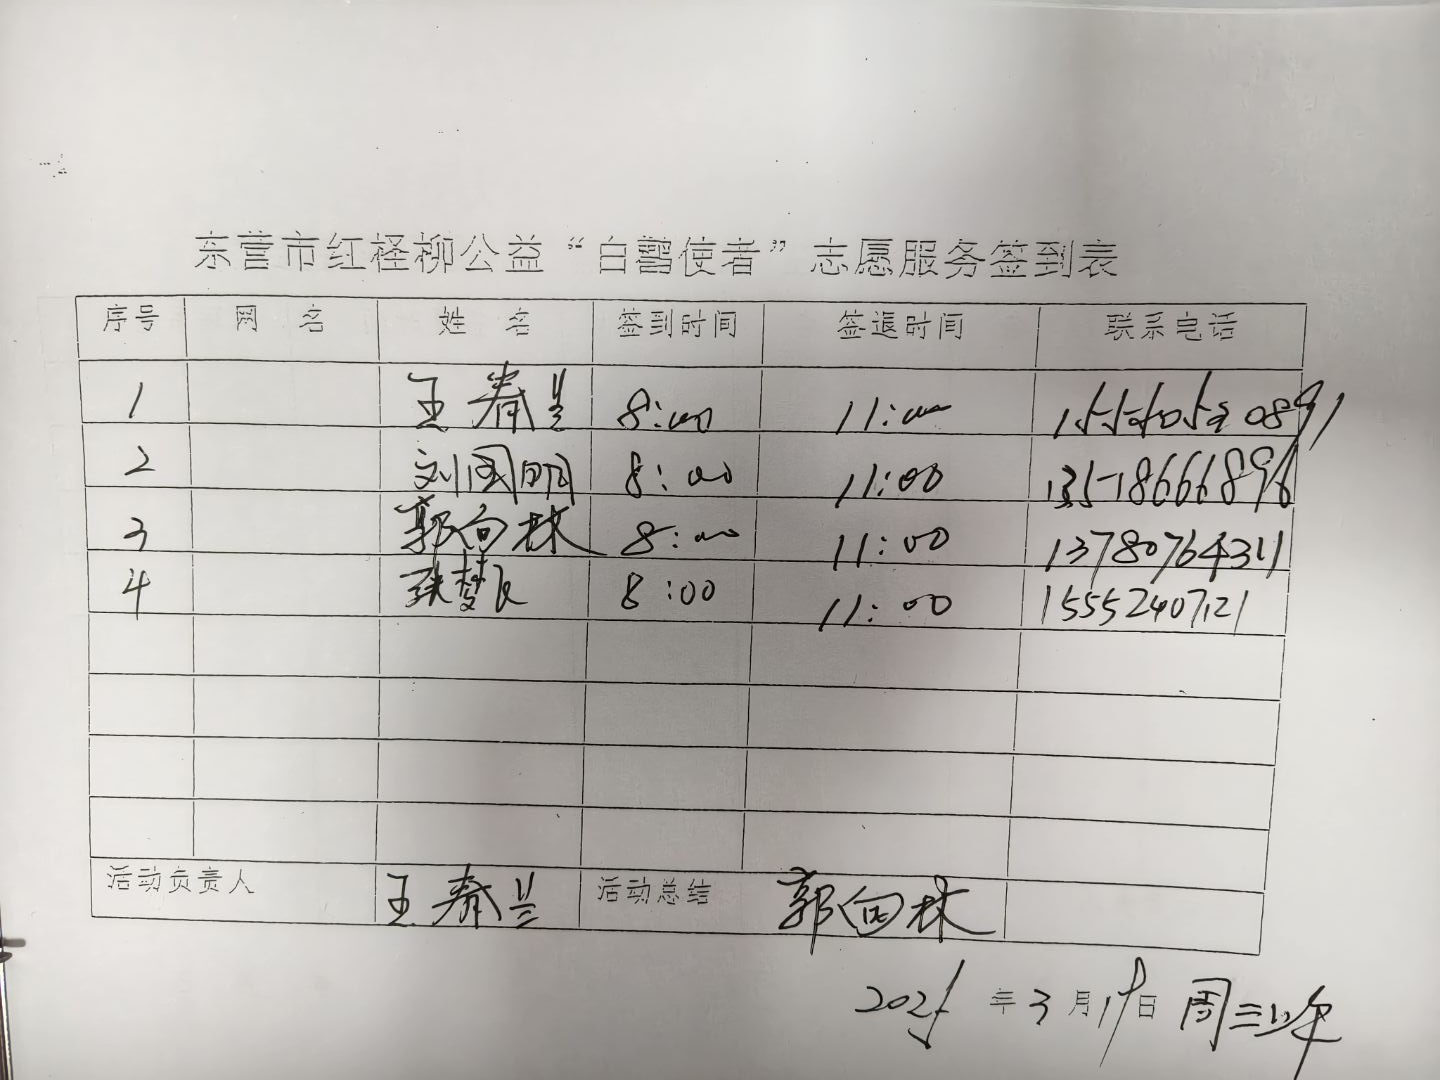 东营市红柽柳公益“白鹳使者”志愿服务签到表
序号 网 名 姓 名 签到时间 签退时间 联系电话
1 王春兰 8:00 11:00
2 刘国明 8:00 11:00 13518666896
3 郭向林 8:00 11:00 13780764311
4 张梦 8:00 11:00 15552407121
活动负责人 王春兰 活动总结 郭向林
2025年3月19日 周三上午